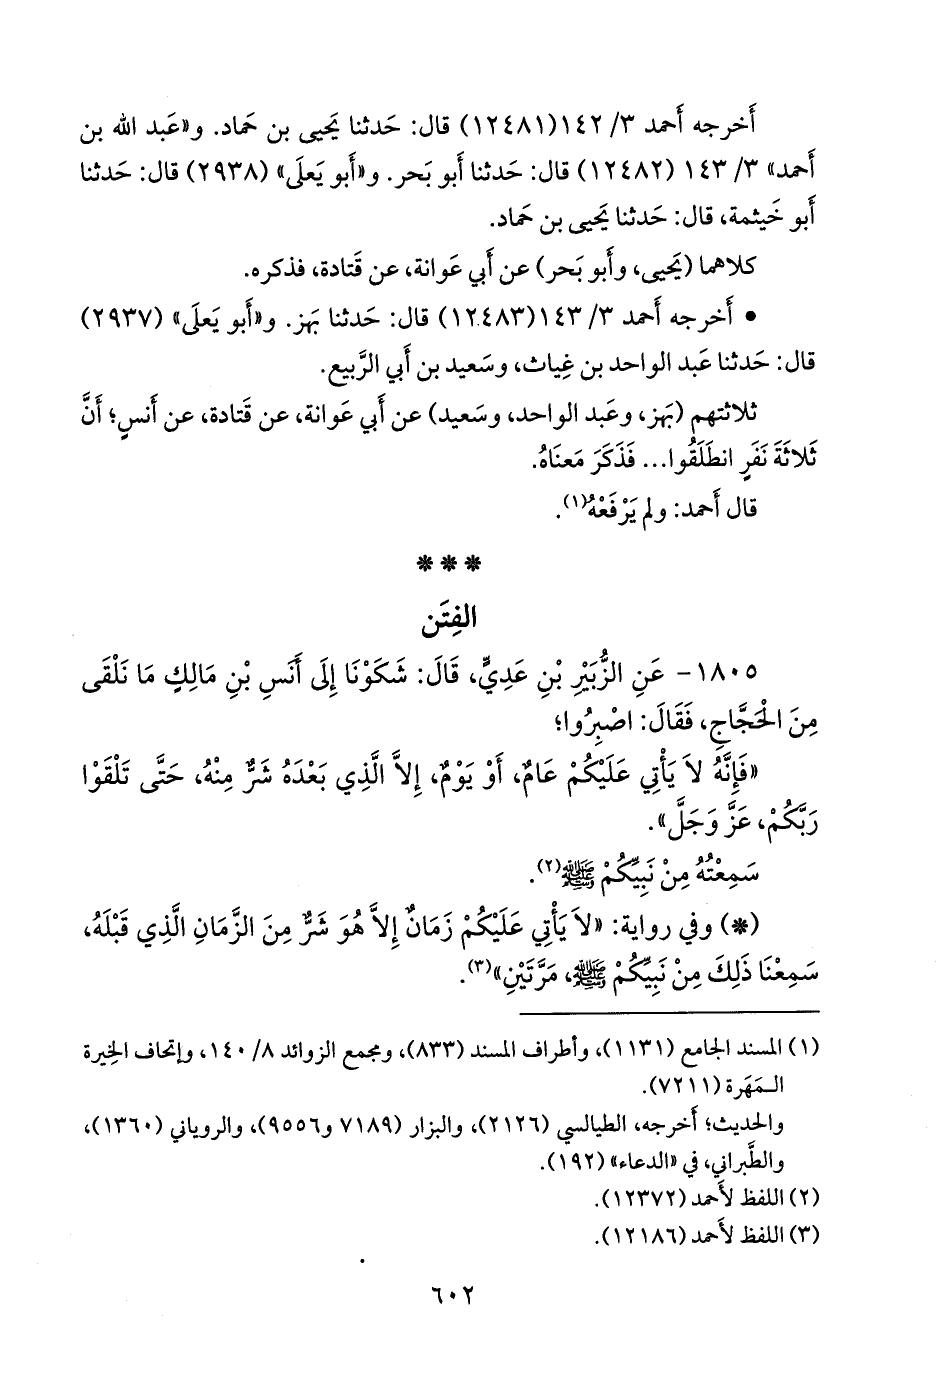 أَخرجه أَحمد ٣/ ١٤٢(١٢٤٨١) قال: حَدثنا يَحيى بن حَماد. و«عَبد الله بن
أَحمد» ٣/ ١٤٣ (١٢٤٨٢) قال: حَدثنا أَبو بَحر. و«أَبو يَعلَى» (٢٩٣٨) قال: حَدثنا
أَبو خَيثمة، قال: حَدثنا يَحيى بن حَماد.
كلاهما (يَحيى، وأَبو بَحر) عن أَبي عَوانة، عن قَتادة، فذكره.
• أَخرجه أَحمد ٣/ ١٤٣(١٢٤٨٣) قال: حَدثنا بَهز. و«أَبو يَعلَى» (٢٩٣٧)
قال: حَدثنا عَبد الواحد بن غِياث، وسَعيد بن أَبي الرَّبيع.
ثلاثتهم (بَهز، وعَبد الواحد، وسَعيد) عن أَبي عَوانة، عن قَتادة، عن أَنسٍ؛ أَنَّ
ثَلاثَةَ نَفَرٍ انطَلَقُوا... فَذَكَرَ مَعنَاهُ.
قال أَحمد: ولم يَرْفَعْهُ(١).
***
الفِتَن
١٨٠٥- عَنِ الزُّبَيْرِ بْنِ عَدِيٍّ، قَالَ: شَكَوْنَا إِلَى أَنَسِ بْنِ مَالِكٍ مَا نَلْقَى
مِنَ الْحَجَّاجِ، فَقَالَ: اصْبِرُوا؛
«فَإِنَّهُ لاَ يَأْتِي عَلَيْكُمْ عَامٌ، أَوْ يَوْمٌ، إِلاَّ الَّذِي بَعْدَهُ شَرٌّ مِنْهُ، حَتَّى تَلْقَوْا
رَبَّكُمْ، عَزَّ وَجَلَّ».
سَمِعْتُهُ مِنْ نَبِيِّكُمْ ﷺ(٢).
(*) وفي رواية: «لاَ يَأْتِي عَلَيْكُمْ زَمَانٌ إِلاَّ هُوَ شَرٌّ مِنَ الزَّمَانِ الَّذِي قَبْلَهُ،
سَمِعْنَا ذَلِكَ مِنْ نَبِيِّكُمْ ﷺ، مَرَّتَيْنِ»(٣).
(١) المسند الجامع (١١٣١)، وأطراف المسند (٨٣٣)، ومجمع الزوائد ٨/ ١٤٠، وإتحاف الخِيرة
المَهَرة (٧٢١١).
والحديث؛ أَخرجه، الطيالسي (٢١٢٦)، والبزار (٧١٨٩ و٩٥٥٦)، والروياني (١٣٦٠)،
والطَّبراني، في «الدعاء» (١٩٢).
(٢) اللفظ لأَحمد (١٢٣٧٢).
(٣) اللفظ لأَحمد (١٢١٨٦).
٦٠٢